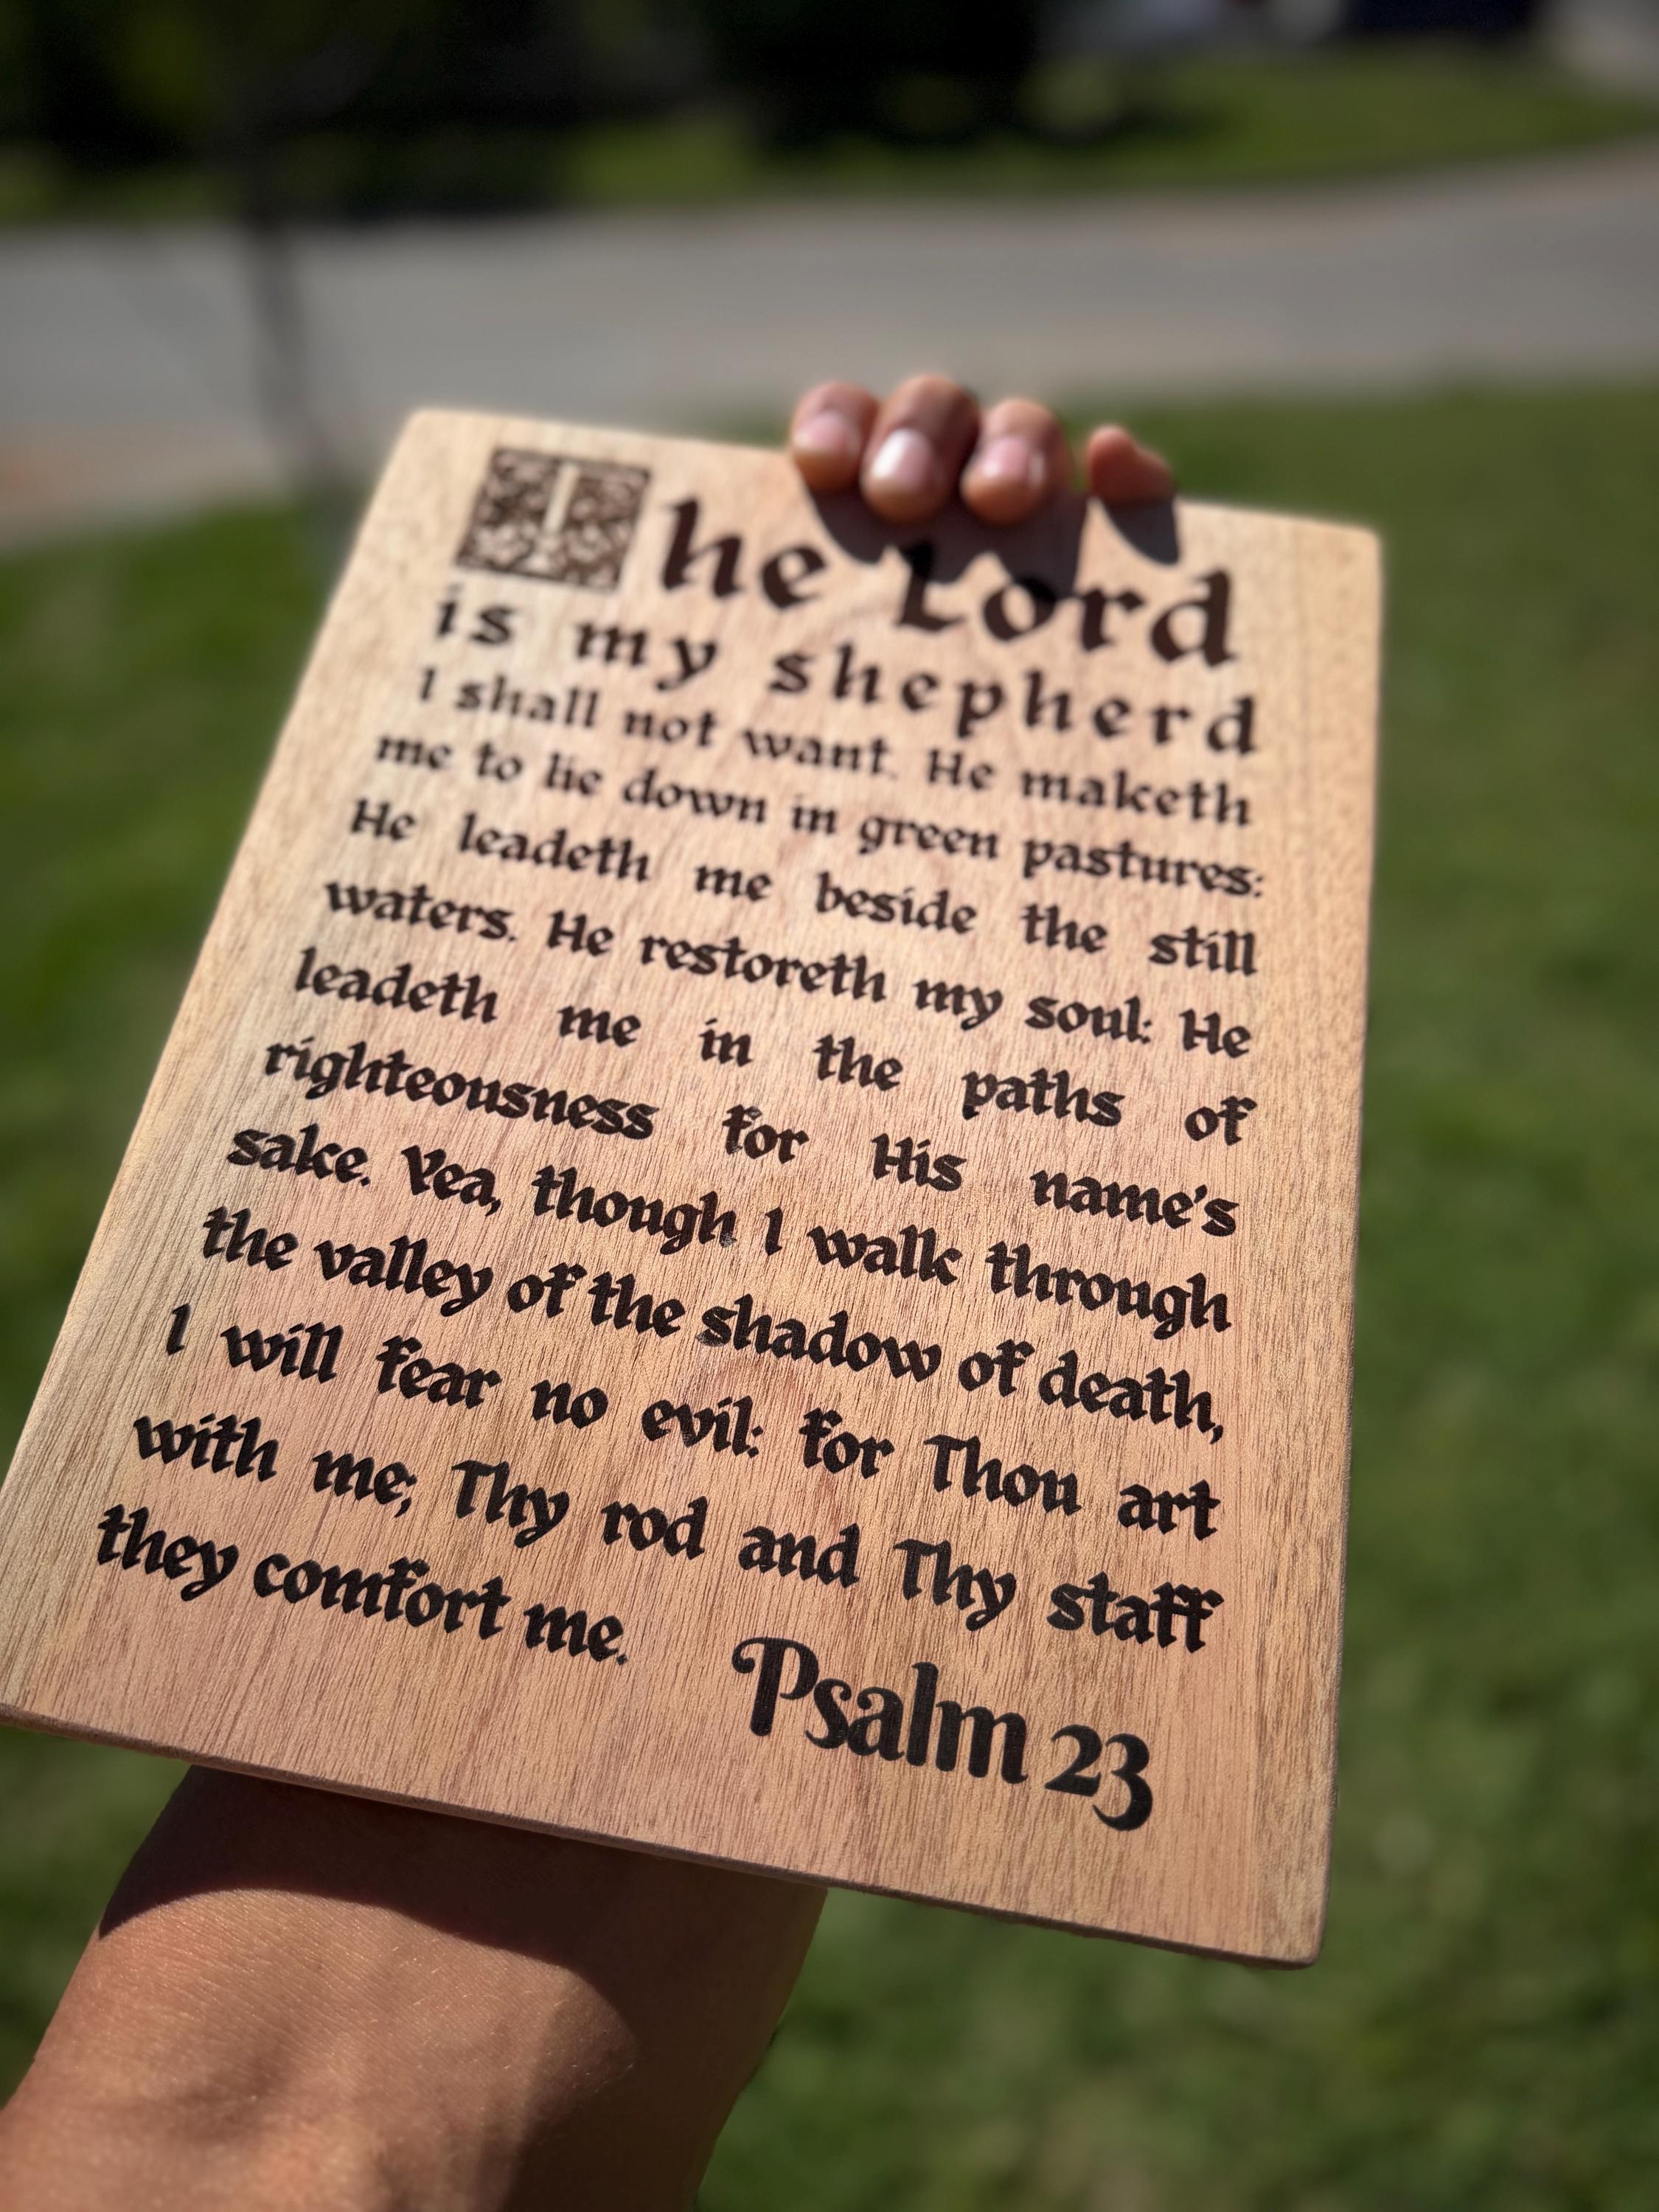 The Lord
is my shepherd
I shall not want. He maketh
me to lie down in green pastures:
He leadeth me beside the still
waters. He restoreth my soul: He
leadeth me in the paths of
righteousness for His name's
sake. Yea, though I walk through
the valley of the shadow of death,
I will fear no evil: for Thou art
with me; Thy rod and Thy staff
they comfort me.
Psalm 23